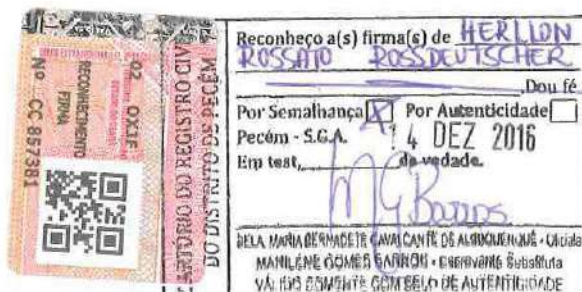 02 OX1F
RECONHECIMENTO
FIRMA
Nº CC 857381
CARTÓRIO DO REGISTRO CIV
DO DISTRITO DE PECÉM
Reconheço a(s) firma(s) de HERLLON
ROSSATO ROSSDEUTSCHER
Dou fé
Por Semalhança X Por Autenticidade
Pecém - S.G.A. 14 DEZ 2016
Em test, da vedade.
BELA MARIA BERNADETE CAVALCANTE DE ALBUQUERQUE - Oficiala
MANILENE GOMES BARROS - Escrevente Substituta
VÁLIDO SOMENTE COM SELO DE AUTENTICIDADE